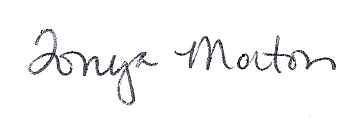 Tonya Morton